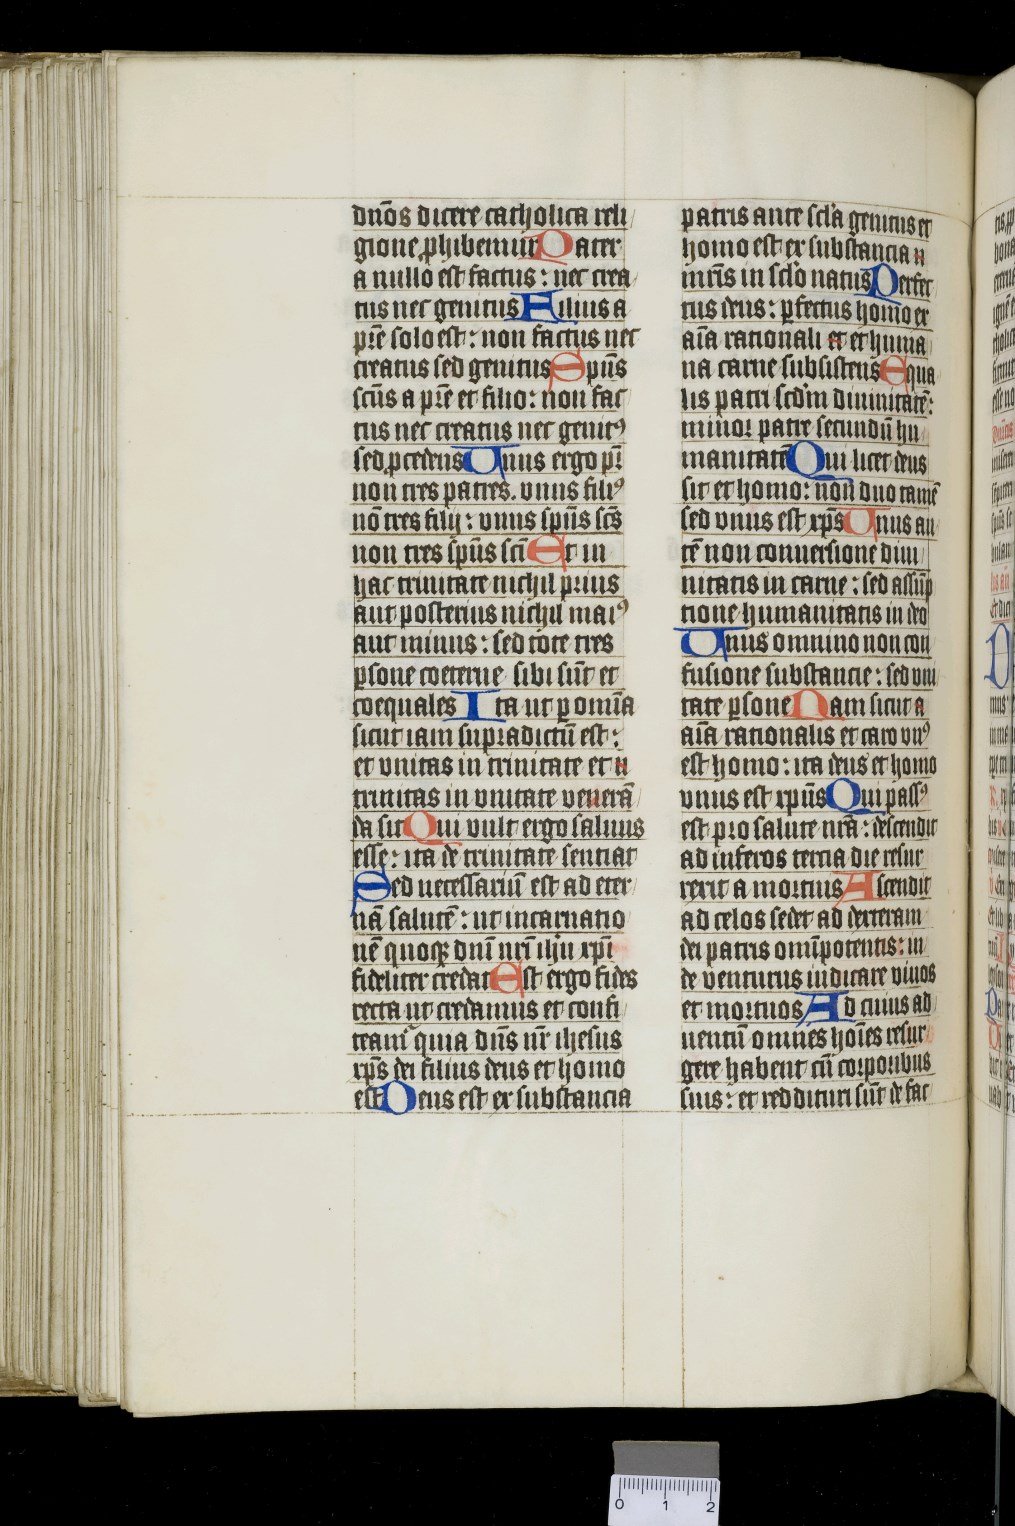 dnōs dicere catholica reli
gione ꝓhibemur Pater
a nullo est factus : nec crea
tus nec genitus Filius a
pr̄e solo est : non factus nec
creatus sed genitus Spūs
scūs a pr̄e et filio : non fac
tus nec creatus nec genitꝰ
sed ꝓcedens Unus ergo pr̄
non tres patres . vnus filiꝰ
nō tres filij : vnus spūs scūs
non tres spūs scī Et in
hac trinitate nichil prius
aut posterius nichil maiꝰ
aut minus : sed tote tres
ꝑsone coeterne sibi sūt et
coequales Ita ut ꝑ omīa
sicut iam supradictū est :
et vnitas in trinitate et
trinitas in vnitate venerā
da sit Qui vult ergo saluus
esse : ita de trinitate sentiat
Sed necessariū est ad eter
nā salutē : ut incarnatio
nē quoqꝫ dnī nrī ihū xpī
fideliter credat Est ergo fides
recta ut credamus et confi
team̄ quia dn̄s nr̄ ihesus
xpūs dei filius deus et homo
est Deus est ex substancia
patris ante scl̄a genitus et
homo est ex substancia
mr̄is in scl̄o natus Perfec
tus deus : ꝑfectus homo ex
aīa rationali et huma
na carne subsistens Equa
lis patri scd̄m diuinitatē :
minor patre secundū hu
manitatē Qui licet deus
sit et homo : non duo tamē
sed vnus est xpūs Unus au
tē non conuersione diui
nitatis in carne : sed assūp
tione humanitatis in deo
Unus omnino non con
fusione substancie : sed vni
tate ꝑsone Nam sicut a
aīa rationalis et caro vnꝰ
est homo : ita deus et homo
vnus est xpūs Qui passꝰ
est pro salute nr̄a : descendit
ad inferos tercia die resur
rexit a mortuis Ascendit
ad celos sedet ad dexteram
dei patris omīpotentis : in
de venturus iudicare viuos
et mortuos Ad cuius ad
uentū omnes hoīes resur
gere habent cū corporibus
suis : et reddituri sūt de fac